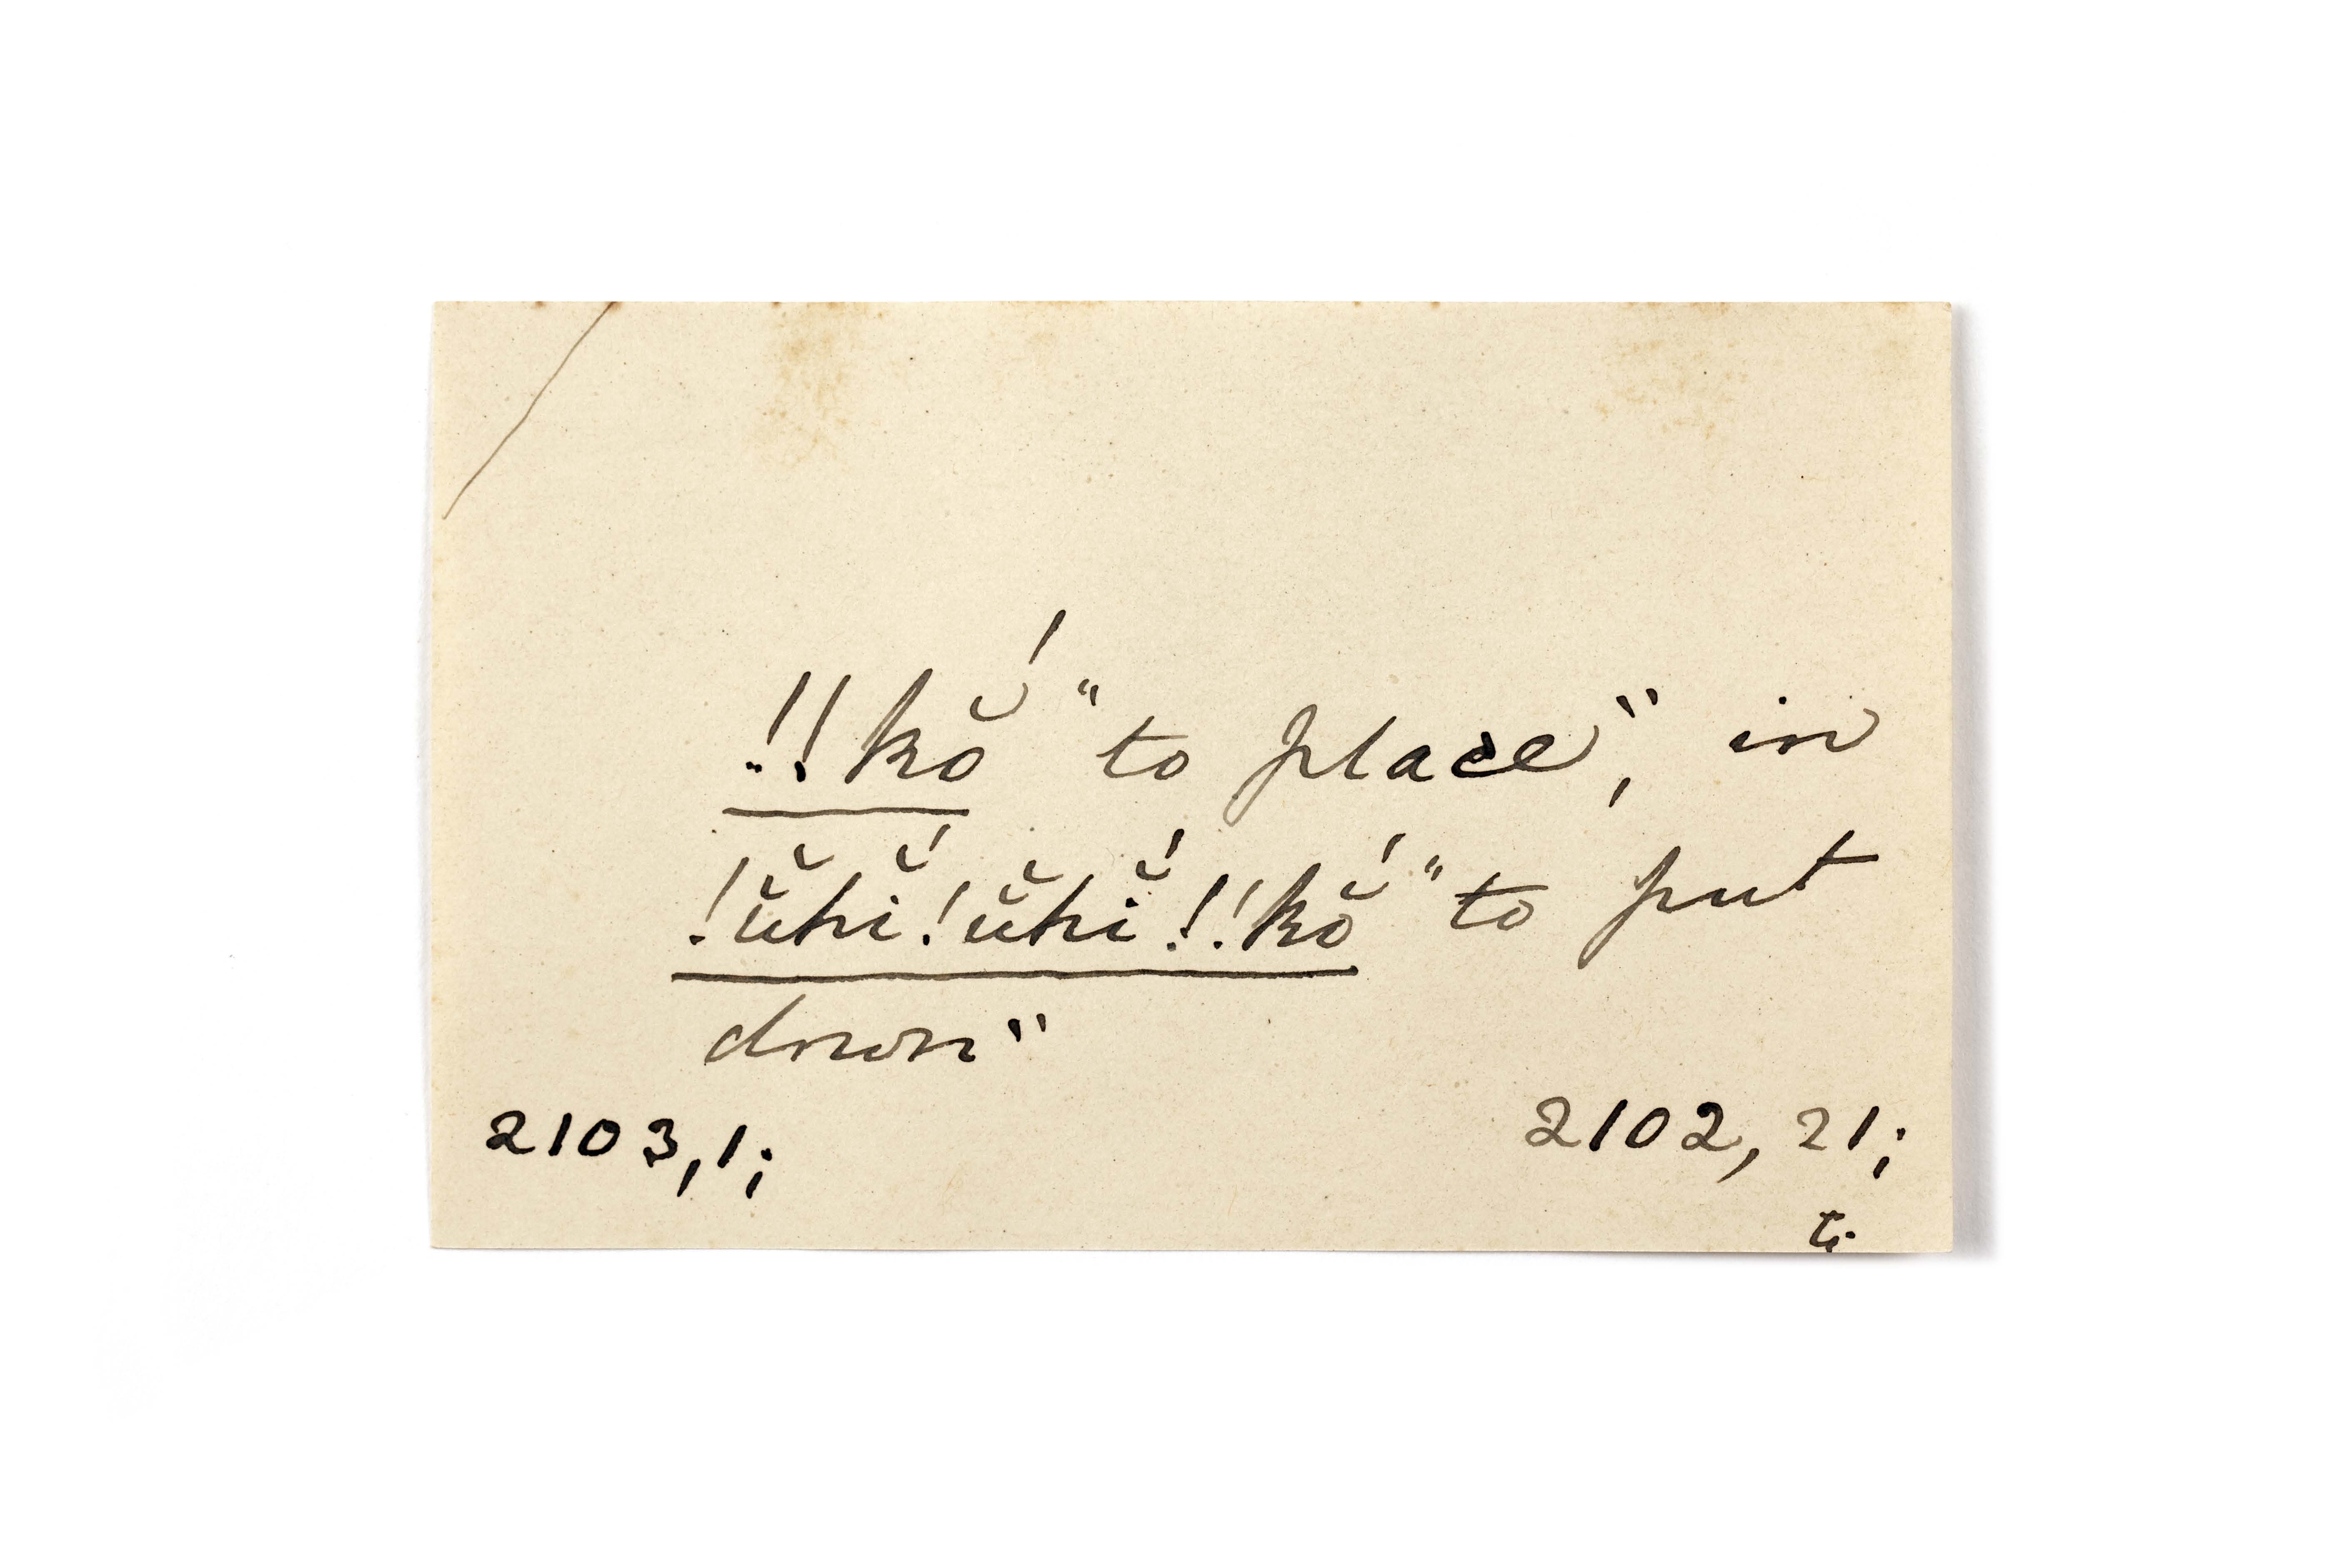 !!kŏ́ "to place", in
!ŭ̈hĭ́!ŭ̈hĭ́!!kŏ́ "to put
down"
2103,1; 2102, 21;